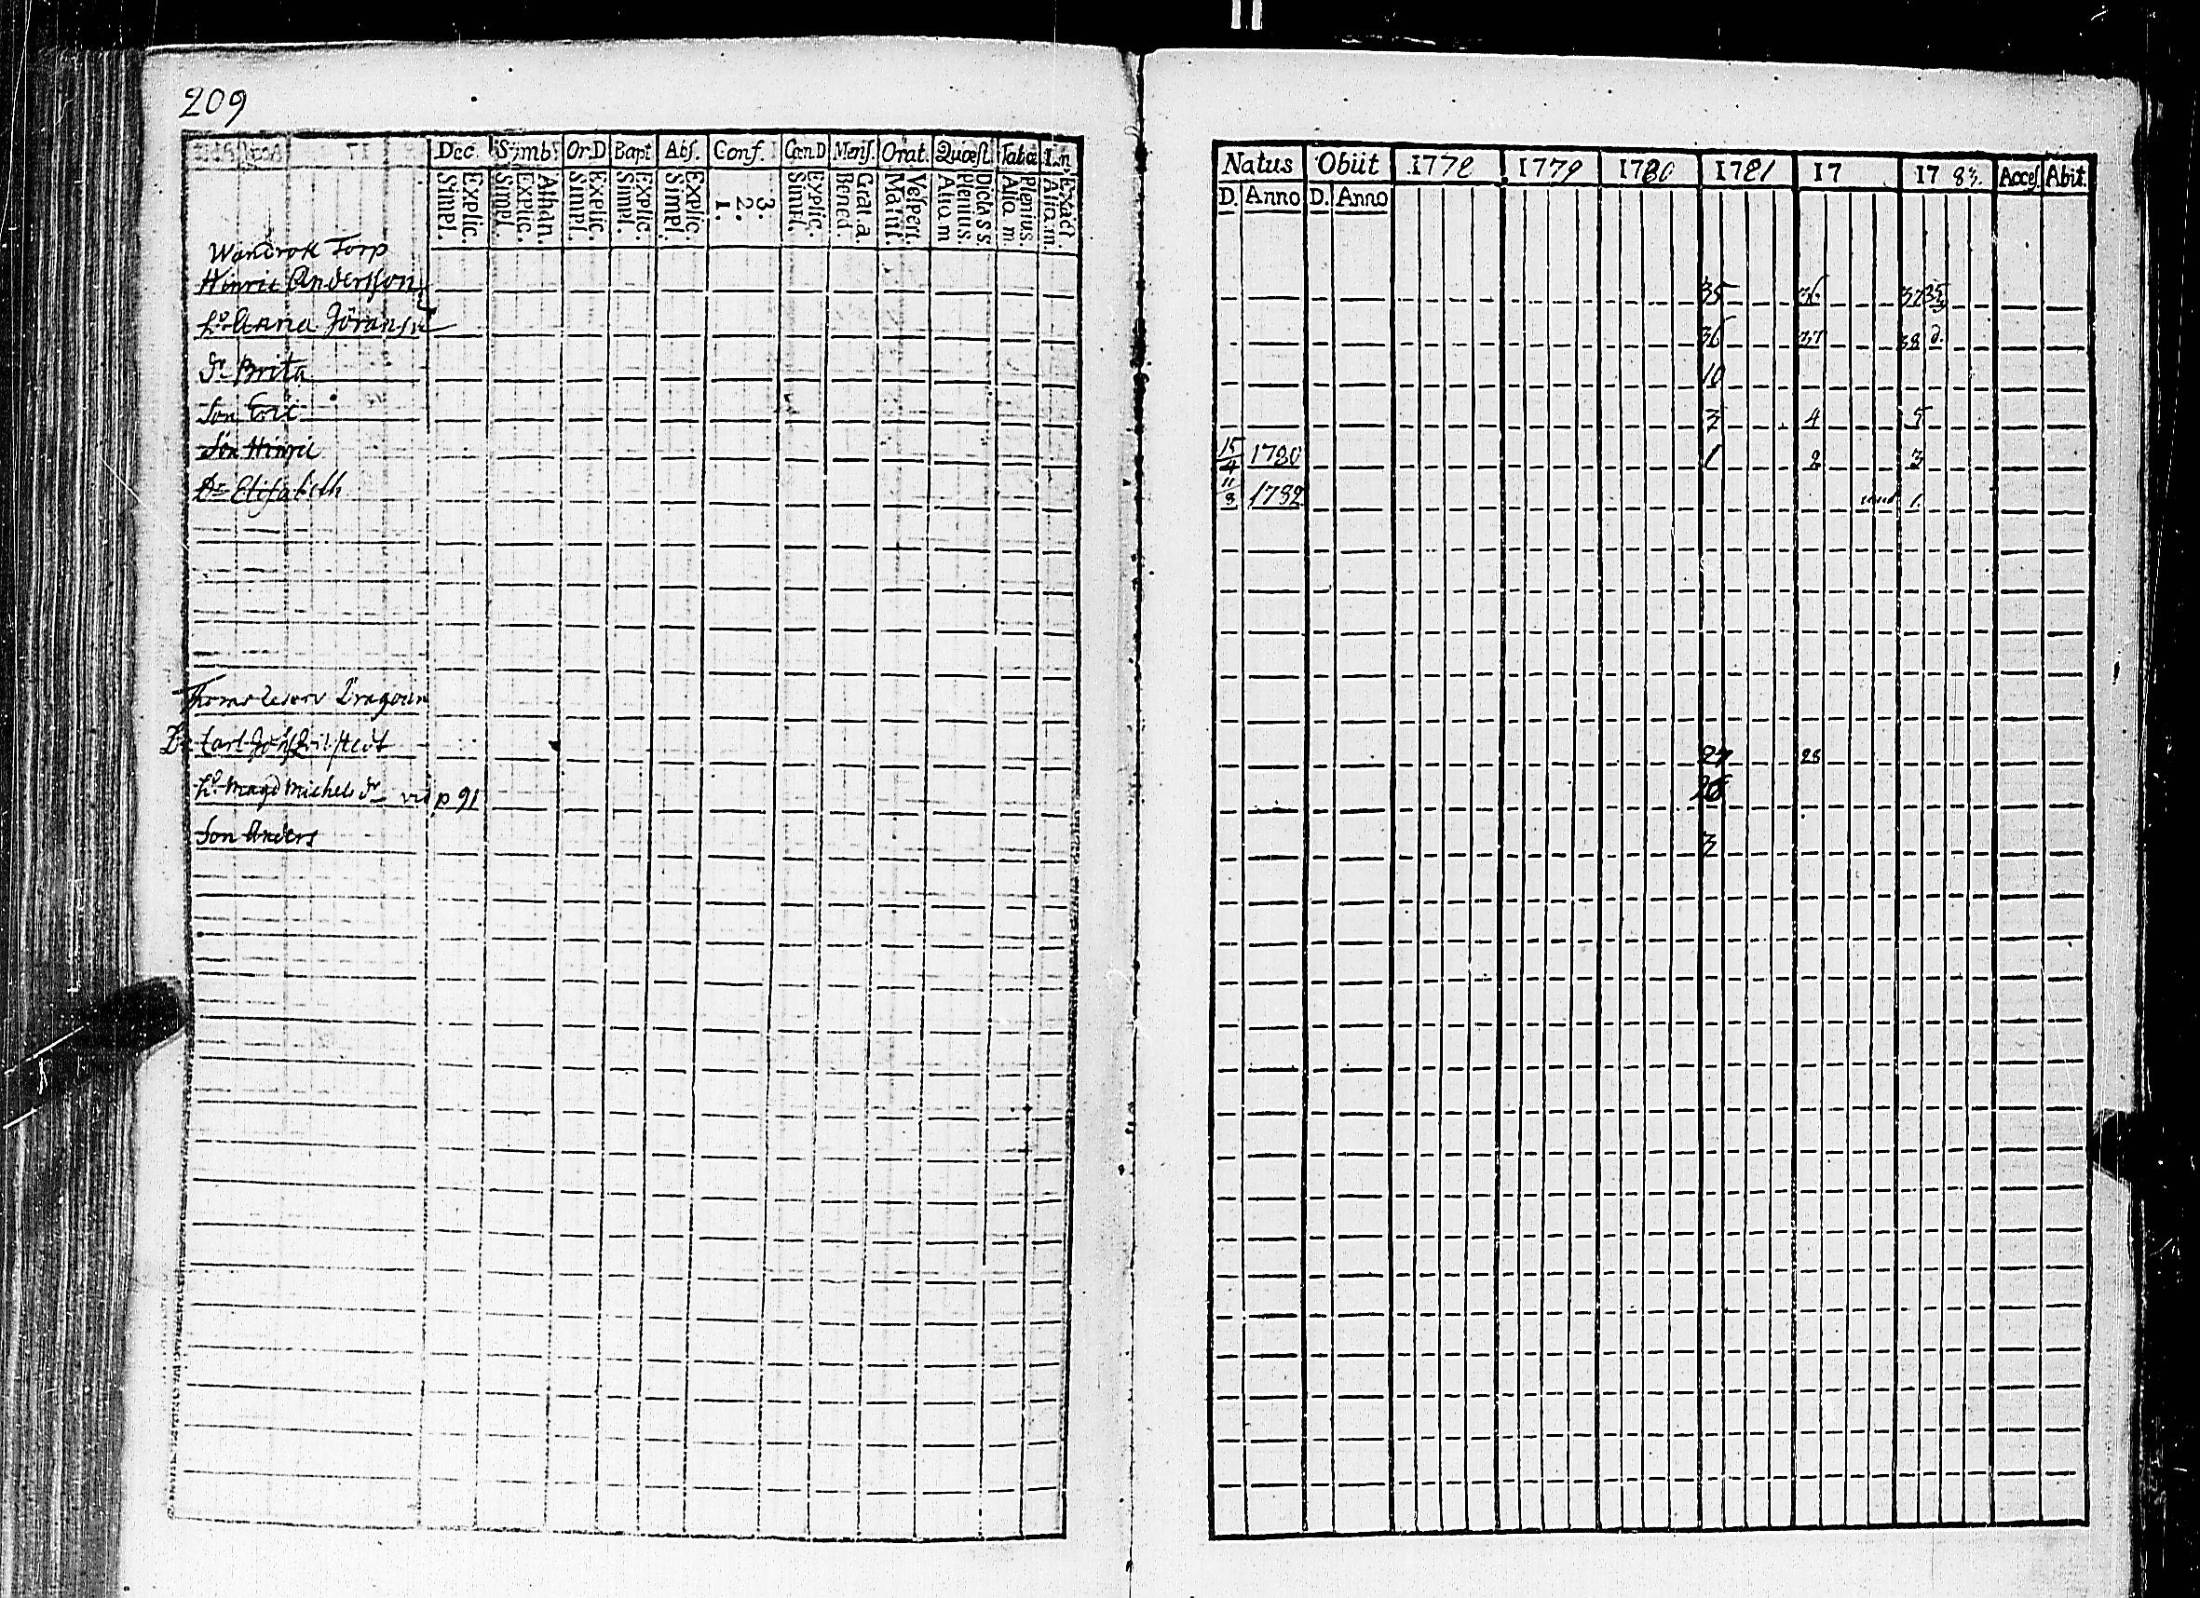 209
Dec. Simb. Or.D Bapt Abs. Conf. Cœn D Mens. Orat. Quæst. Tabæ
Simpl. Explic. Simpl. Explic. Athan. Simpl. Explic. Simpl. Explic. Simpl. Explic. 1. 2. 3. Simpl. Explic. Bened. Grat. a. Matut. Vespert. Aliq. m Plenius. Dicta S S. Aliq. m Plenius. Aliq. m. Exact.
Torp
Hinric Andersson
h:o Anna Göransd:r
d:r Brita
Son Eric
Son Hinric
D:r Elisabeth
Dragoun
Carl
h:o Magd Michelsd:r vid p 91
Son Anders
Natus Obiit 1778 1779 1780 1781 17 1783. Acces. Abit.
D. Anno D. Anno
35 36 37
36 37 38
10
3 4 5
15/4 1780 1 2 3
11/8 1782 1
27 28
26
3